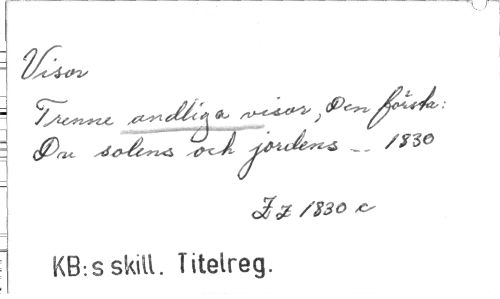 Visor
Trenne andliga visor, Den första:
Du solens och jordens -- 1830
Zz 1830 c
KB:s skill. Titelreg.